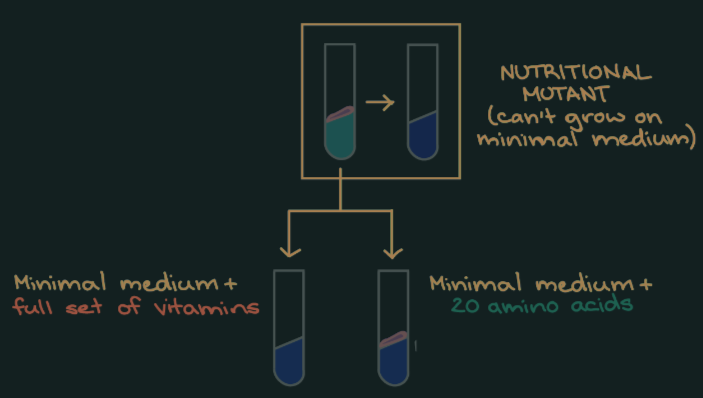 NUTRITIONAL
MUTANT
(can't grow on
minimal medium)
Minimal medium +
full set of vitamins
Minimal medium +
20 amino acids